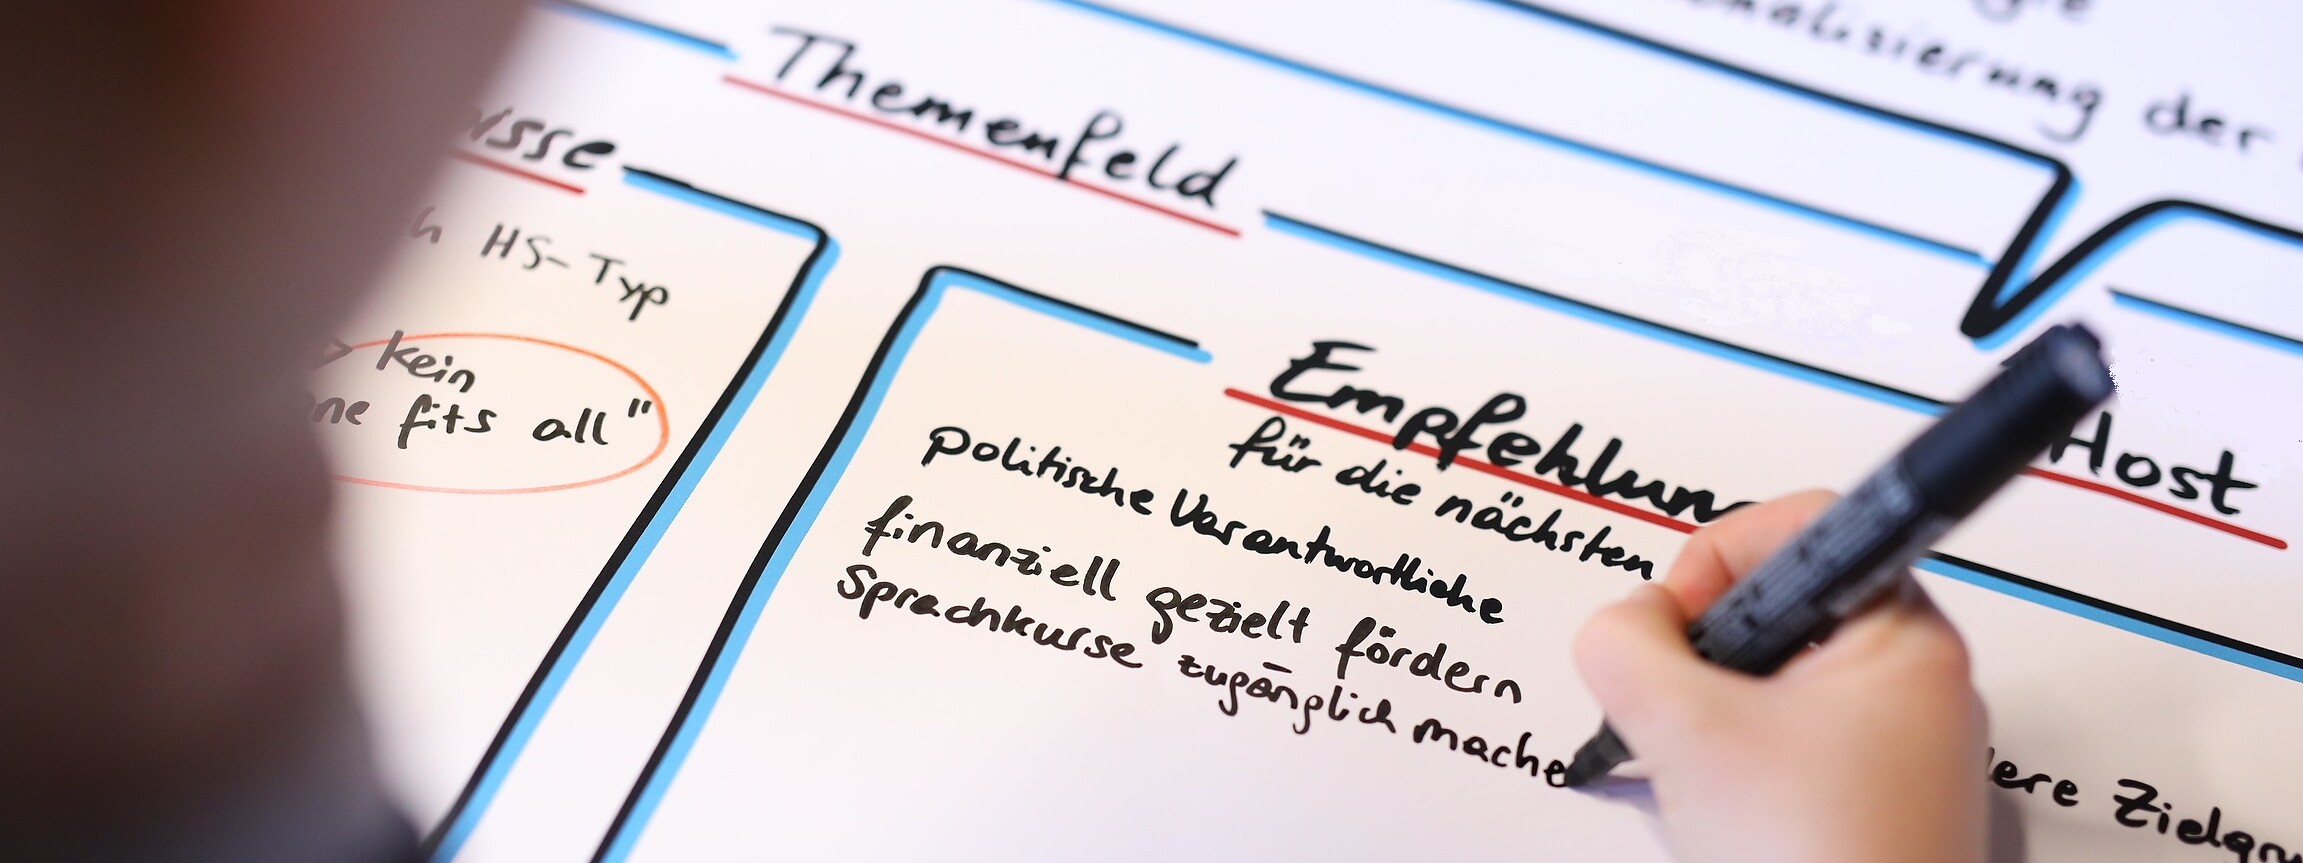 der
Themenfeld
HS-Typ
kein
fits all"
Empfehlun
für die nächsten
politische Verantwortliche
finanziell gezielt fördern
Sprachkurse zugänglich mache
Host